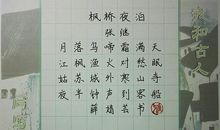 枫桥夜泊
张继
月落乌啼霜满天
江枫渔火对愁眠
姑苏城外寒山寺
夜半钟声到客船
和古人